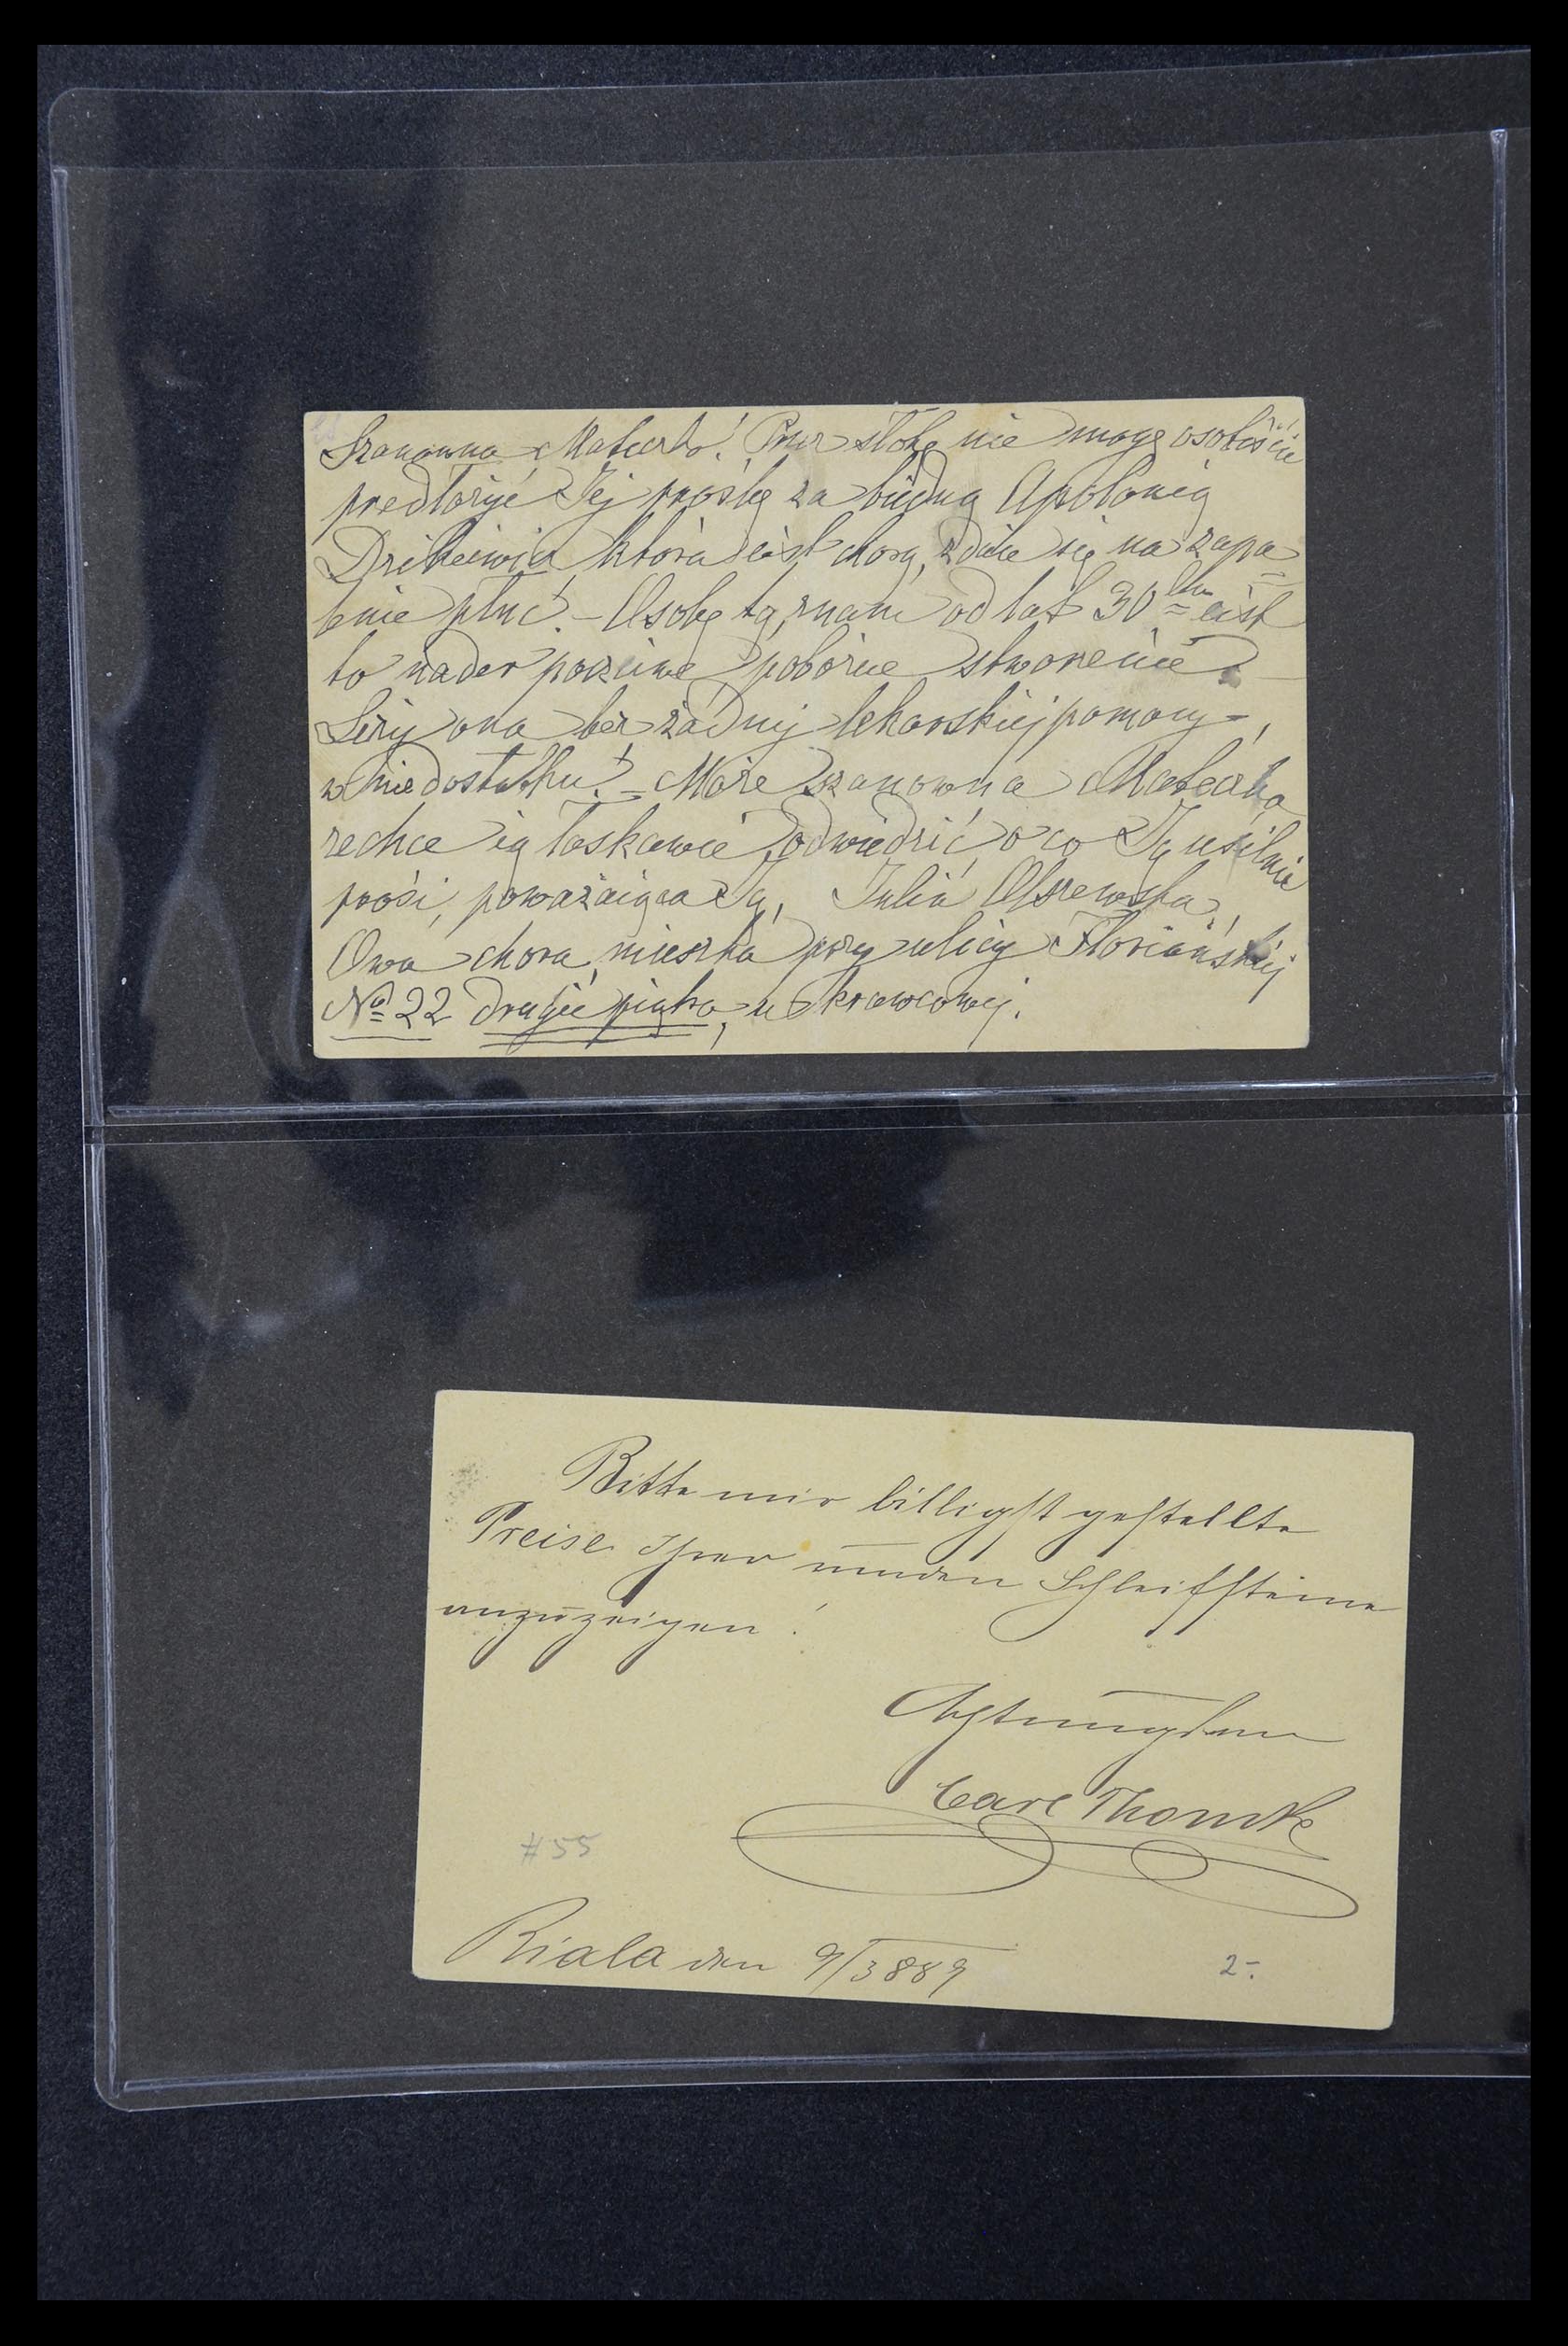 Szanowna Mateczko! Przez słotę nie mogę osobiście
predłożyć Jej prośbę za biédną Apolonią
która iest chorą, zdaie się na zapa=
lenie płuc. – Osobę tą, znam od lat 30 iest
to nader poczciwe pobożne stworzenie
Leży ona bez żadnej lekarskiej pomocy,
w niedostatku! – Może szanowna Mateczka
zechce ią łaskawie odwiedzić, o co Ją usilnie
prosi, poważaiąca Ją, Julia Olszewska,
Owa chora, mieszka przy ulicy Floriańskiej
No 22 drugie piętro, u krawcowej.
Bitte mir billigst gestellte
Preise Ihrer runden Schleifsteine
anzuzeigen!
Achtungsvoll
Carl
#55
Biala den 9/3 889
2-.